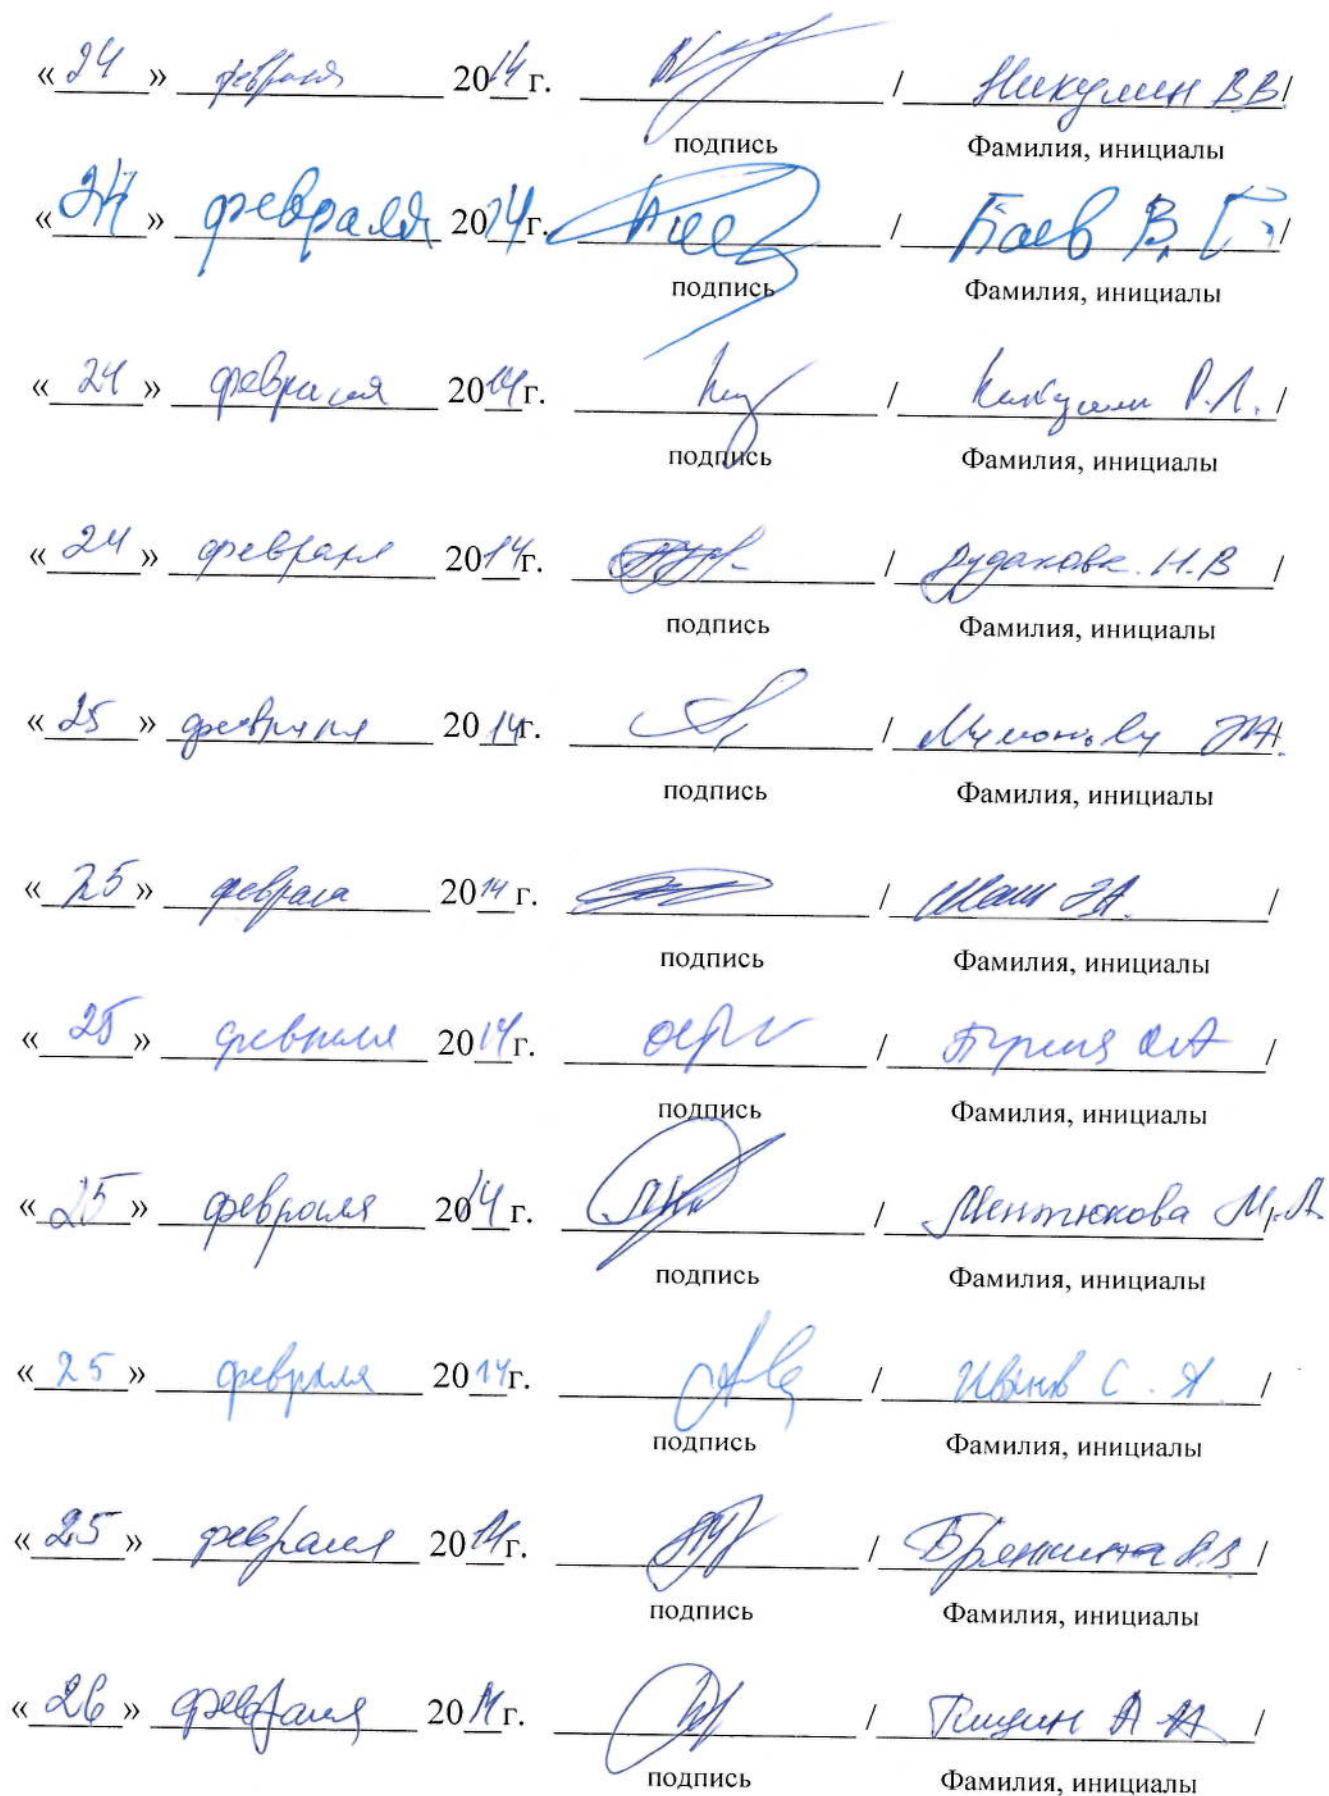 «24» февраля 2014г. / Никулин В.В. /
подпись Фамилия, инициалы
«24» февраля 2014г. / Баев В. Г. /
подпись Фамилия, инициалы
«24» февраля 2014г. / Р.Л. /
подпись Фамилия, инициалы
«24» февраля 2014г. / Рудакова Н.В /
подпись Фамилия, инициалы
«25» февраля 2014г. /
подпись Фамилия, инициалы
«25» февраля 2014г. / /
подпись Фамилия, инициалы
«25» февраля 2014г. / /
подпись Фамилия, инициалы
«25» февраля 2014г. / Ментюкова М.А.
подпись Фамилия, инициалы
«25» февраля 2014г. / Иванов С. А. /
подпись Фамилия, инициалы
«25» февраля 2014г. / /
подпись Фамилия, инициалы
«26» февраля 2014г. / /
подпись Фамилия, инициалы